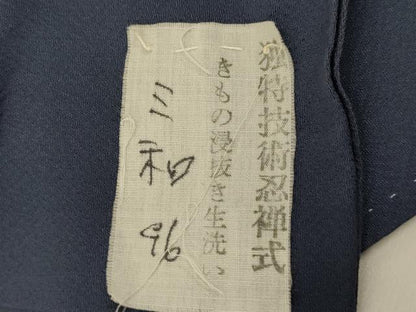 独特技術忍禅式
きもの浸抜き生洗い
三和
96